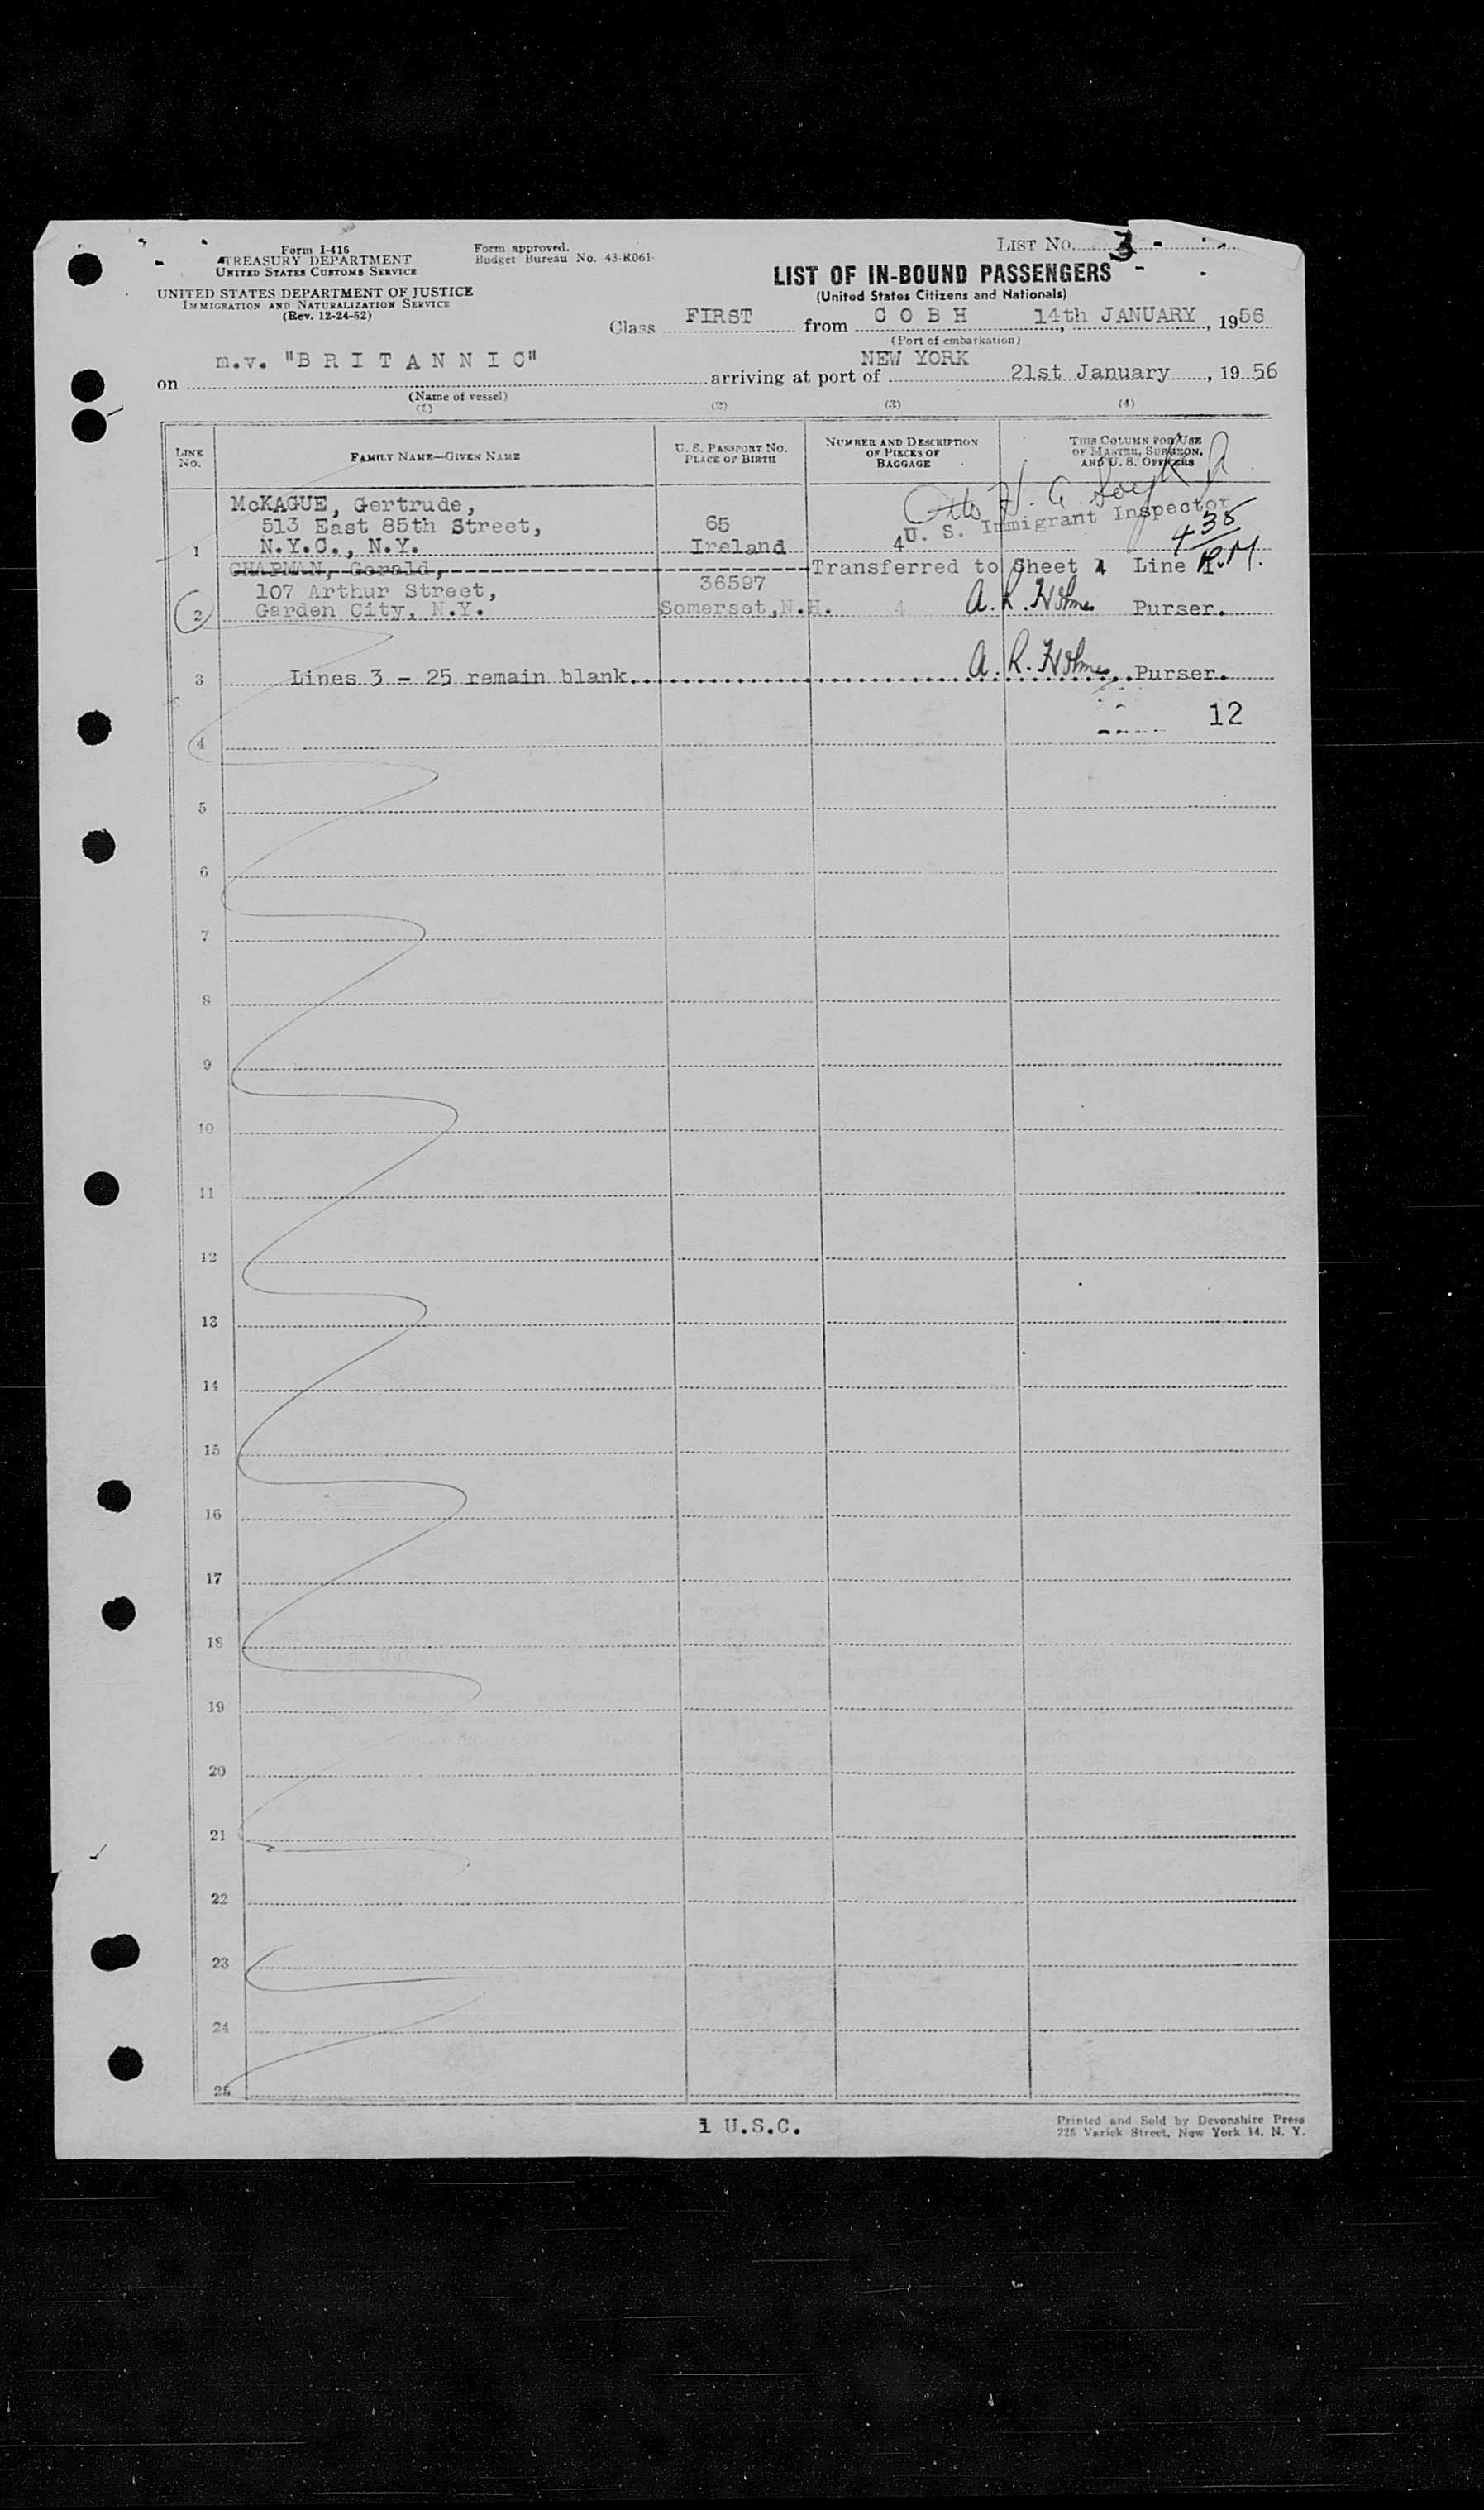 Form I-416
TREASURY DEPARTMENT
UNITED STATES CUSTOMS SERVICE
UNITED STATES DEPARTMENT OF JUSTICE
IMMIGRATION AND NATURALIZATION SERVICE
(Rev. 12-24-52)
Form approved.
Budget Bureau No. 43-R061
LIST No. 3
LIST OF IN-BOUND PASSENGERS
(United States Citizens and Nationals)
Class FIRST from C O B H 14th JANUARY, 1956
(Port of embarkation)
on m.v. "B R I T A N N I C" arriving at port of NEW YORK 21st January, 19 56
(Name of vessel)
(1) (2) (3) (4)
LINE No. FAMILY NAME—GIVEN NAME U. S. PASSPORT No. PLACE OF BIRTH NUMBER AND DESCRIPTION OF PIECES OF BAGGAGE THIS COLUMN FOR USE OF MASTER, SURGEON, AND U. S. OFFICERS
McKAGUE, Gertrude,
513 East 85th Street, 65 U. S. Immigrant Inspector
1 N.Y.C., N.Y. Ireland 4
CHAPMAN, Gerald, Transferred to Sheet 4 Line R.M.
107 Arthur Street, 36597
2 Garden City, N.Y. Somerset, N.H. 4 A. R. Holmes Purser.
3 Lines 3 - 25 remain blank. A. R. Holmes Purser.
12
4
5
6
7
8
9
10
11
12
13
14
15
16
17
18
19
20
21
22
23
24
25
1 U.S.C.
Printed and Sold by Devonshire Press
225 Varick Street, New York 14, N. Y.